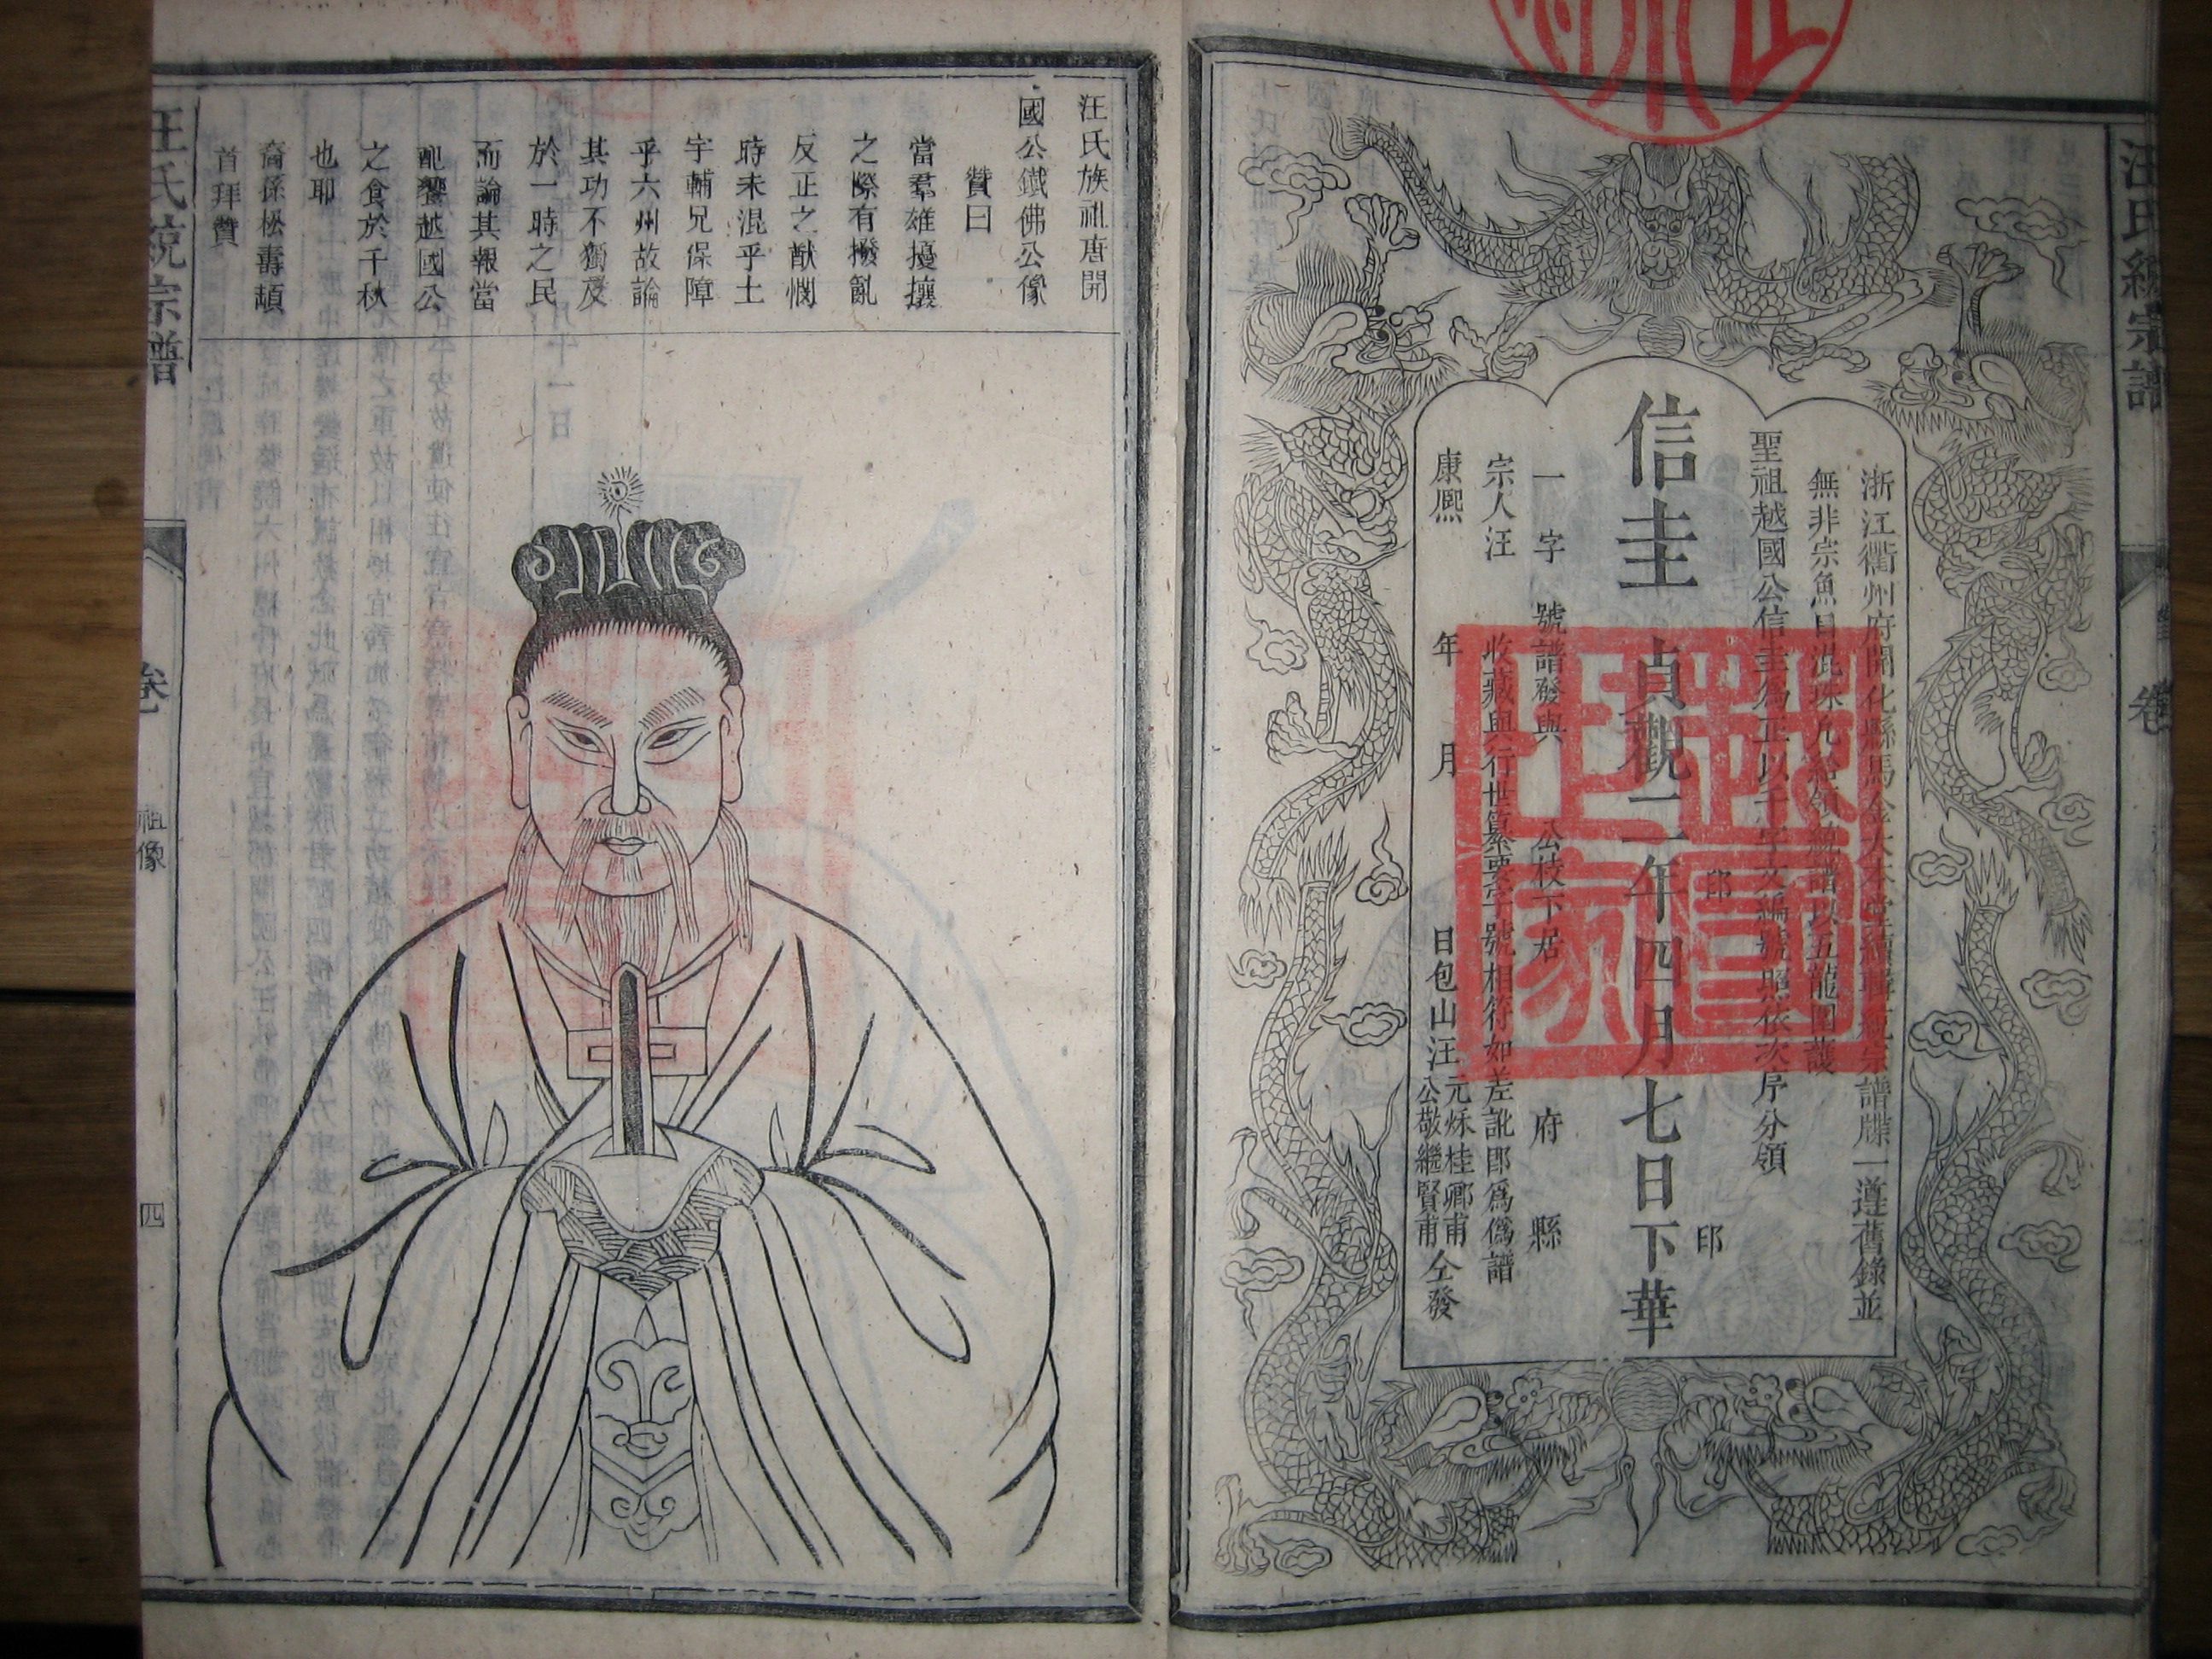 汪氏統宗譜
卷
浙江衢州府開化縣馬金大本堂續輯統宗譜牒一遵舊錄並
無非宗魚目混珠凡給領統譜以五龍圖護
聖祖越國公信圭為正以千字文編號照依次序分領
印
印
信圭
貞觀二年四月七日下華
一字 號譜發與 公枝下居 府 縣
宗人汪 收藏與行世纂要字號相符如差訛即為偽譜
康熈 年 月 日包山汪
元烁桂卿甫
公敬繼賢甫
仝發
越國世家
汪氏族祖唐開
國公鐵佛公像
贊曰
當羣雄擾攘
之際有撥亂
反正之猷憫
時未混乎土
宇輔兄保障
乎六州故論
其功不獨及
於一時之民
而論其報當
配饗越國公
之食於千秋
也耶
裔孫松壽頓
首拜贊
汪氏統宗譜
卷
祖像
四